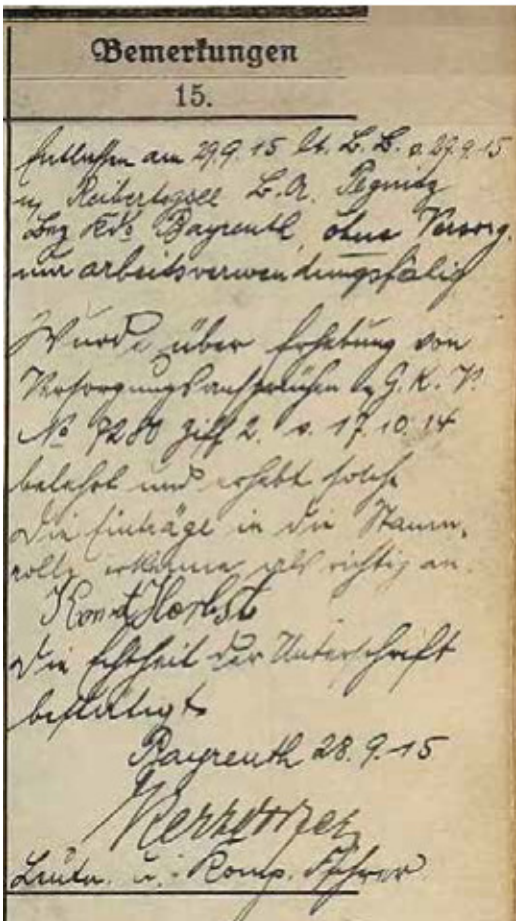 Bemerkungen
15.
Entlassen am 29.9.15 lt. B. B. v. 27.9.15
n. B. A. Pegnitz
Bez Kdo Bayreuth, ohne Versorg.
nur arbeitsverwendungsfähig
Wurde über Erhebung von
Versorgungsansprüchen G. K. V.
No 7280 Ziff 2. v. 17.10.14
belehrt und erhebt solche
Die Einträge in die Stamm-
rolle erkenne als richtig an.
Konrd Herbst
Die Echtheit der Unterschrift
bestätigt
Bayreuth 28.9.15
Leutn. u. Komp. Führer